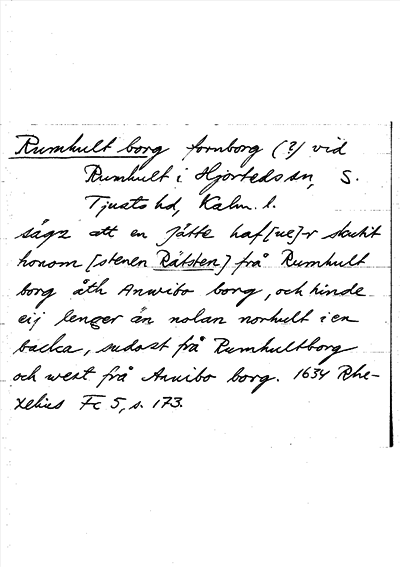 Rumhult borg fornborg (?) vid
Rumhult i Hjorteds sn, S.
Tjusts hd, Kalm. l.
säges att en Jätte haf[ue]r skutit
honom [stenen Rätsten] frå Rumhult
borg åth Anwibo borg, och hinde
eij lenger än nolan norhult i en
backa, sudost frå Rumhultborg
och west frå Anvibo borg. 1634 Rhe-
zelius Fc 5, s. 173.